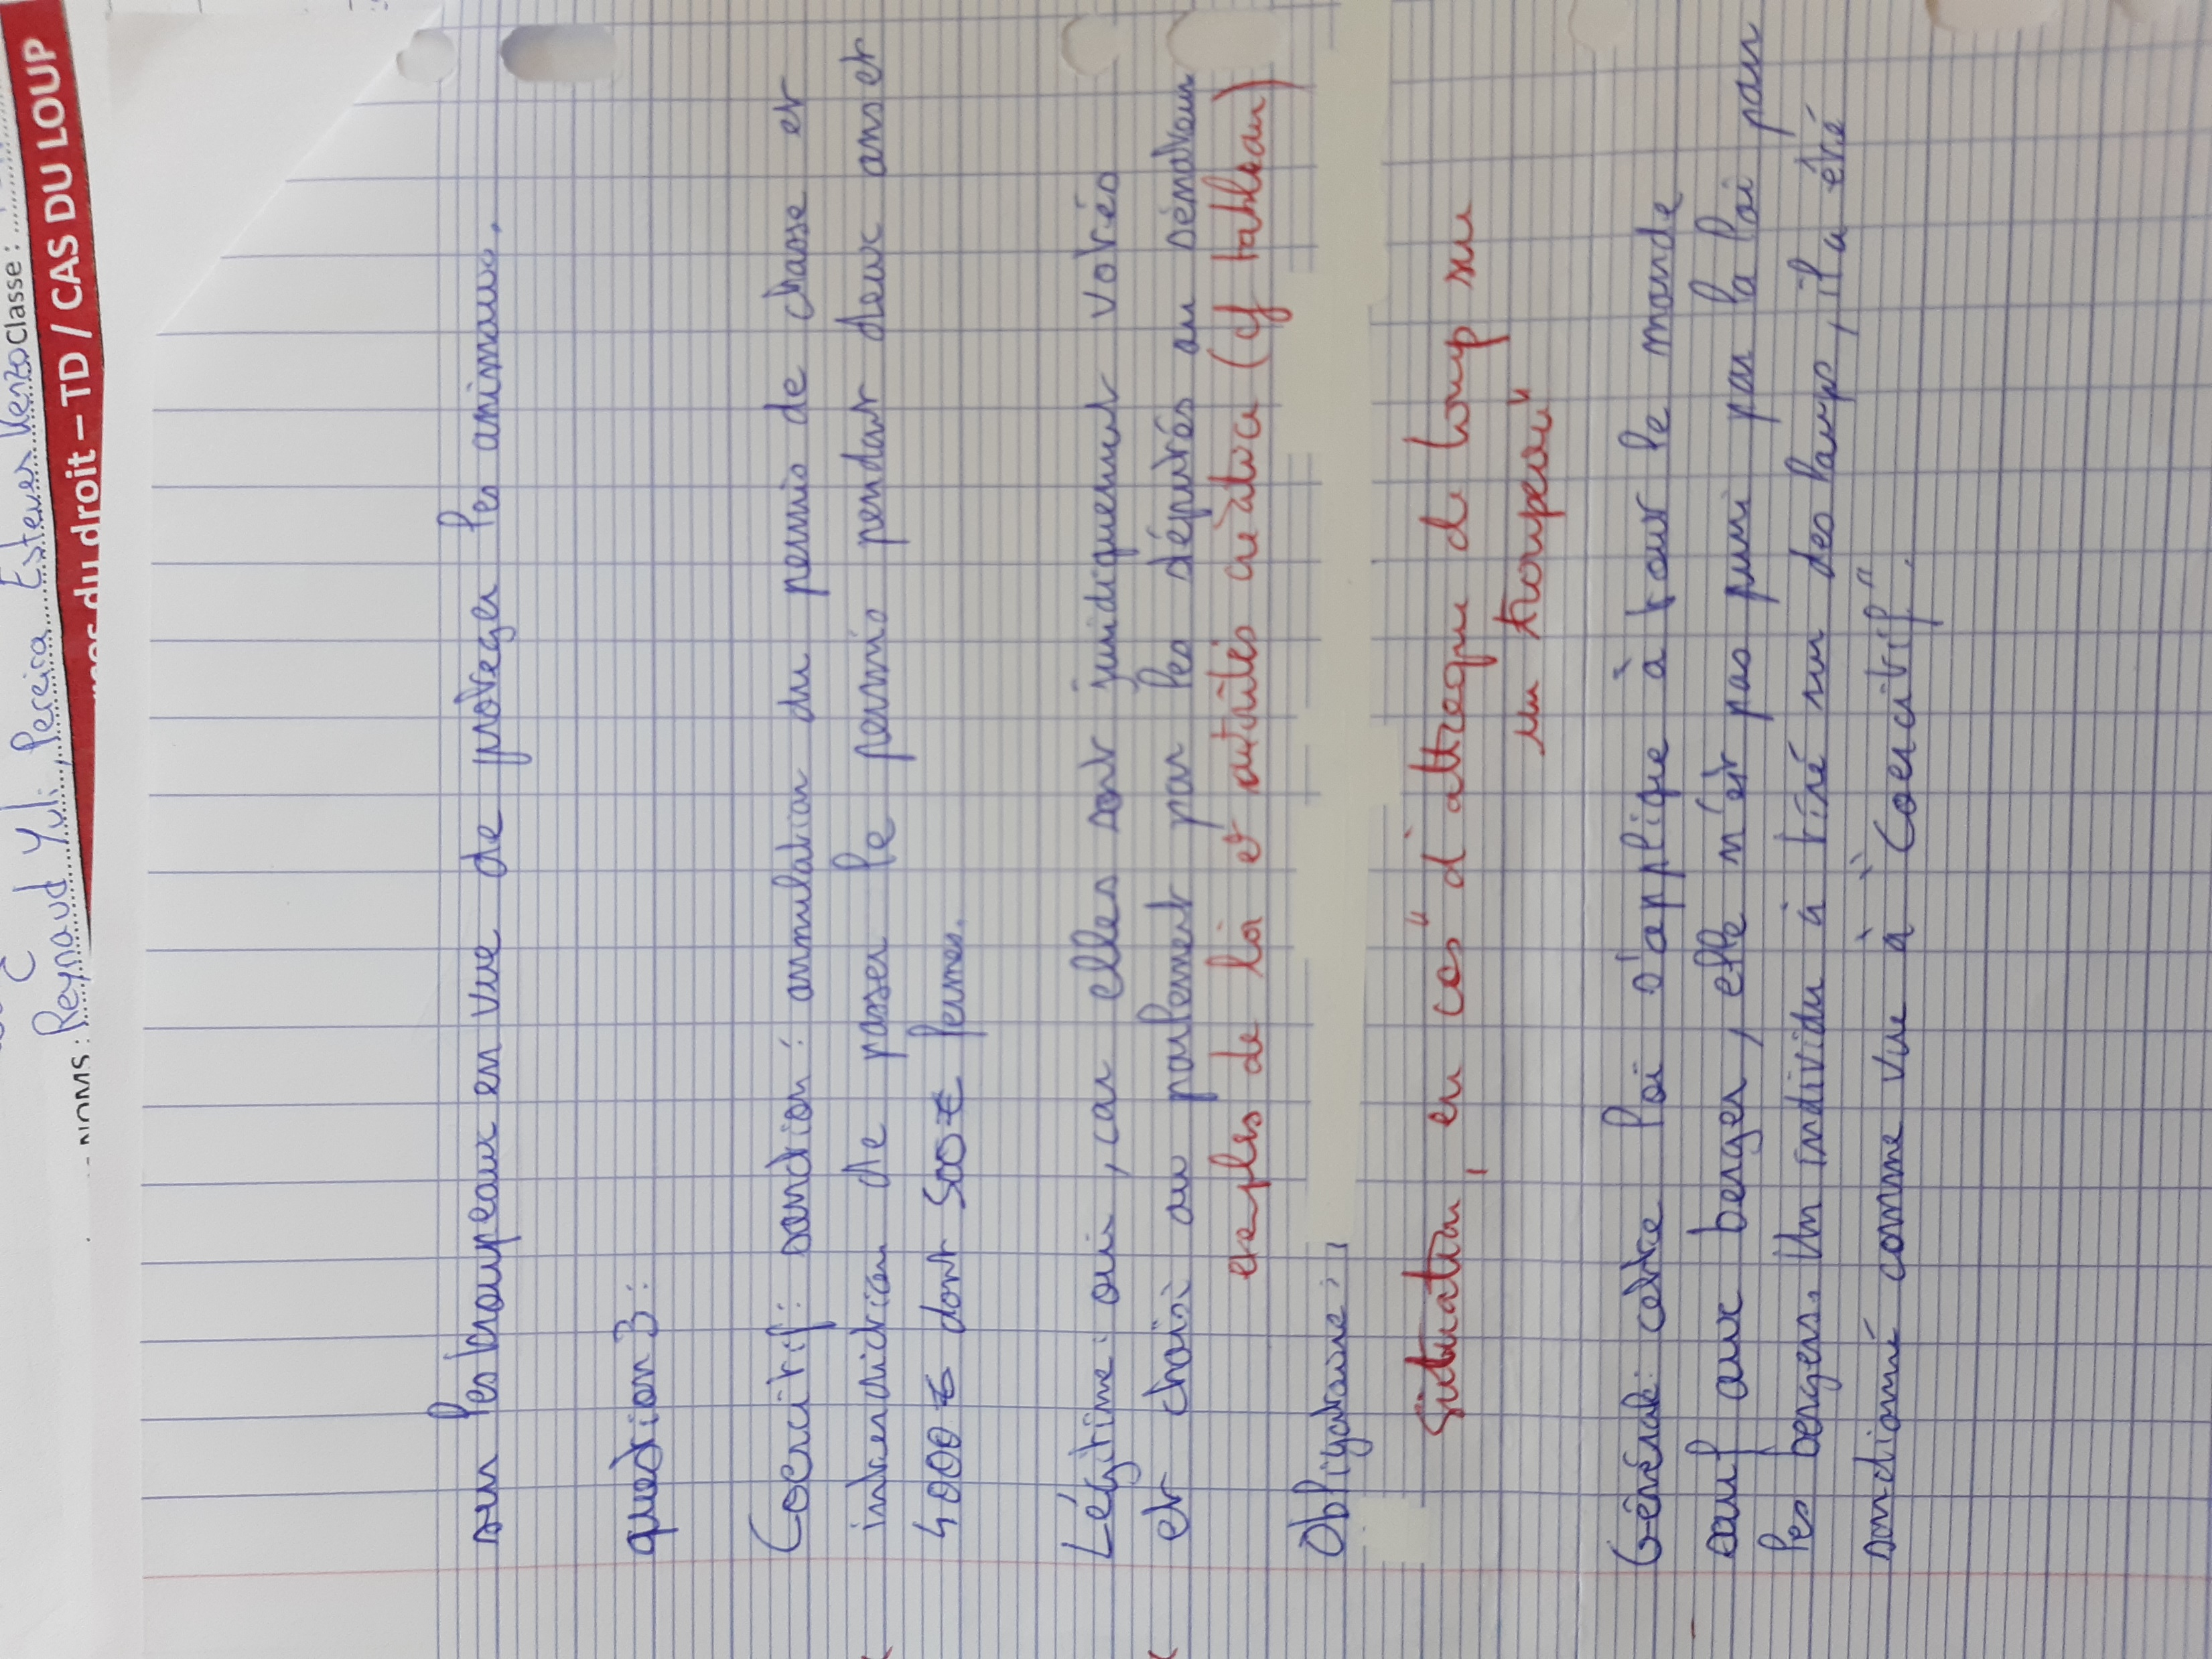 NOMS : Reynaud Yuli Pereira Esteves Kenzo Classe :
du droit – TD / CAS DU LOUP
sur les troupeaux en vue de protéger les animaux.
question 3 :
Coercitif : sanction : annulation du permis de chasse et
interdiction de passer le permis pendant deux ans et
4000€ dont 500€ fermes.
Légitime : oui, car elles sont juridiquement votrés
et choisi au parlement par les députés au sénateur
exemples de loi et autorités créatrice (cf tableau)
Obligatoire :
Situation, en cas "d'attaque de loup su
un troupeau"
Générale : cette loi s'applique à tout le monde
sauf aux berger, elle n'est pas puni par la loi par
les bergers. Un individu à tiré sur des loups, il a été
sanctionné comme vue à "Coercitif".